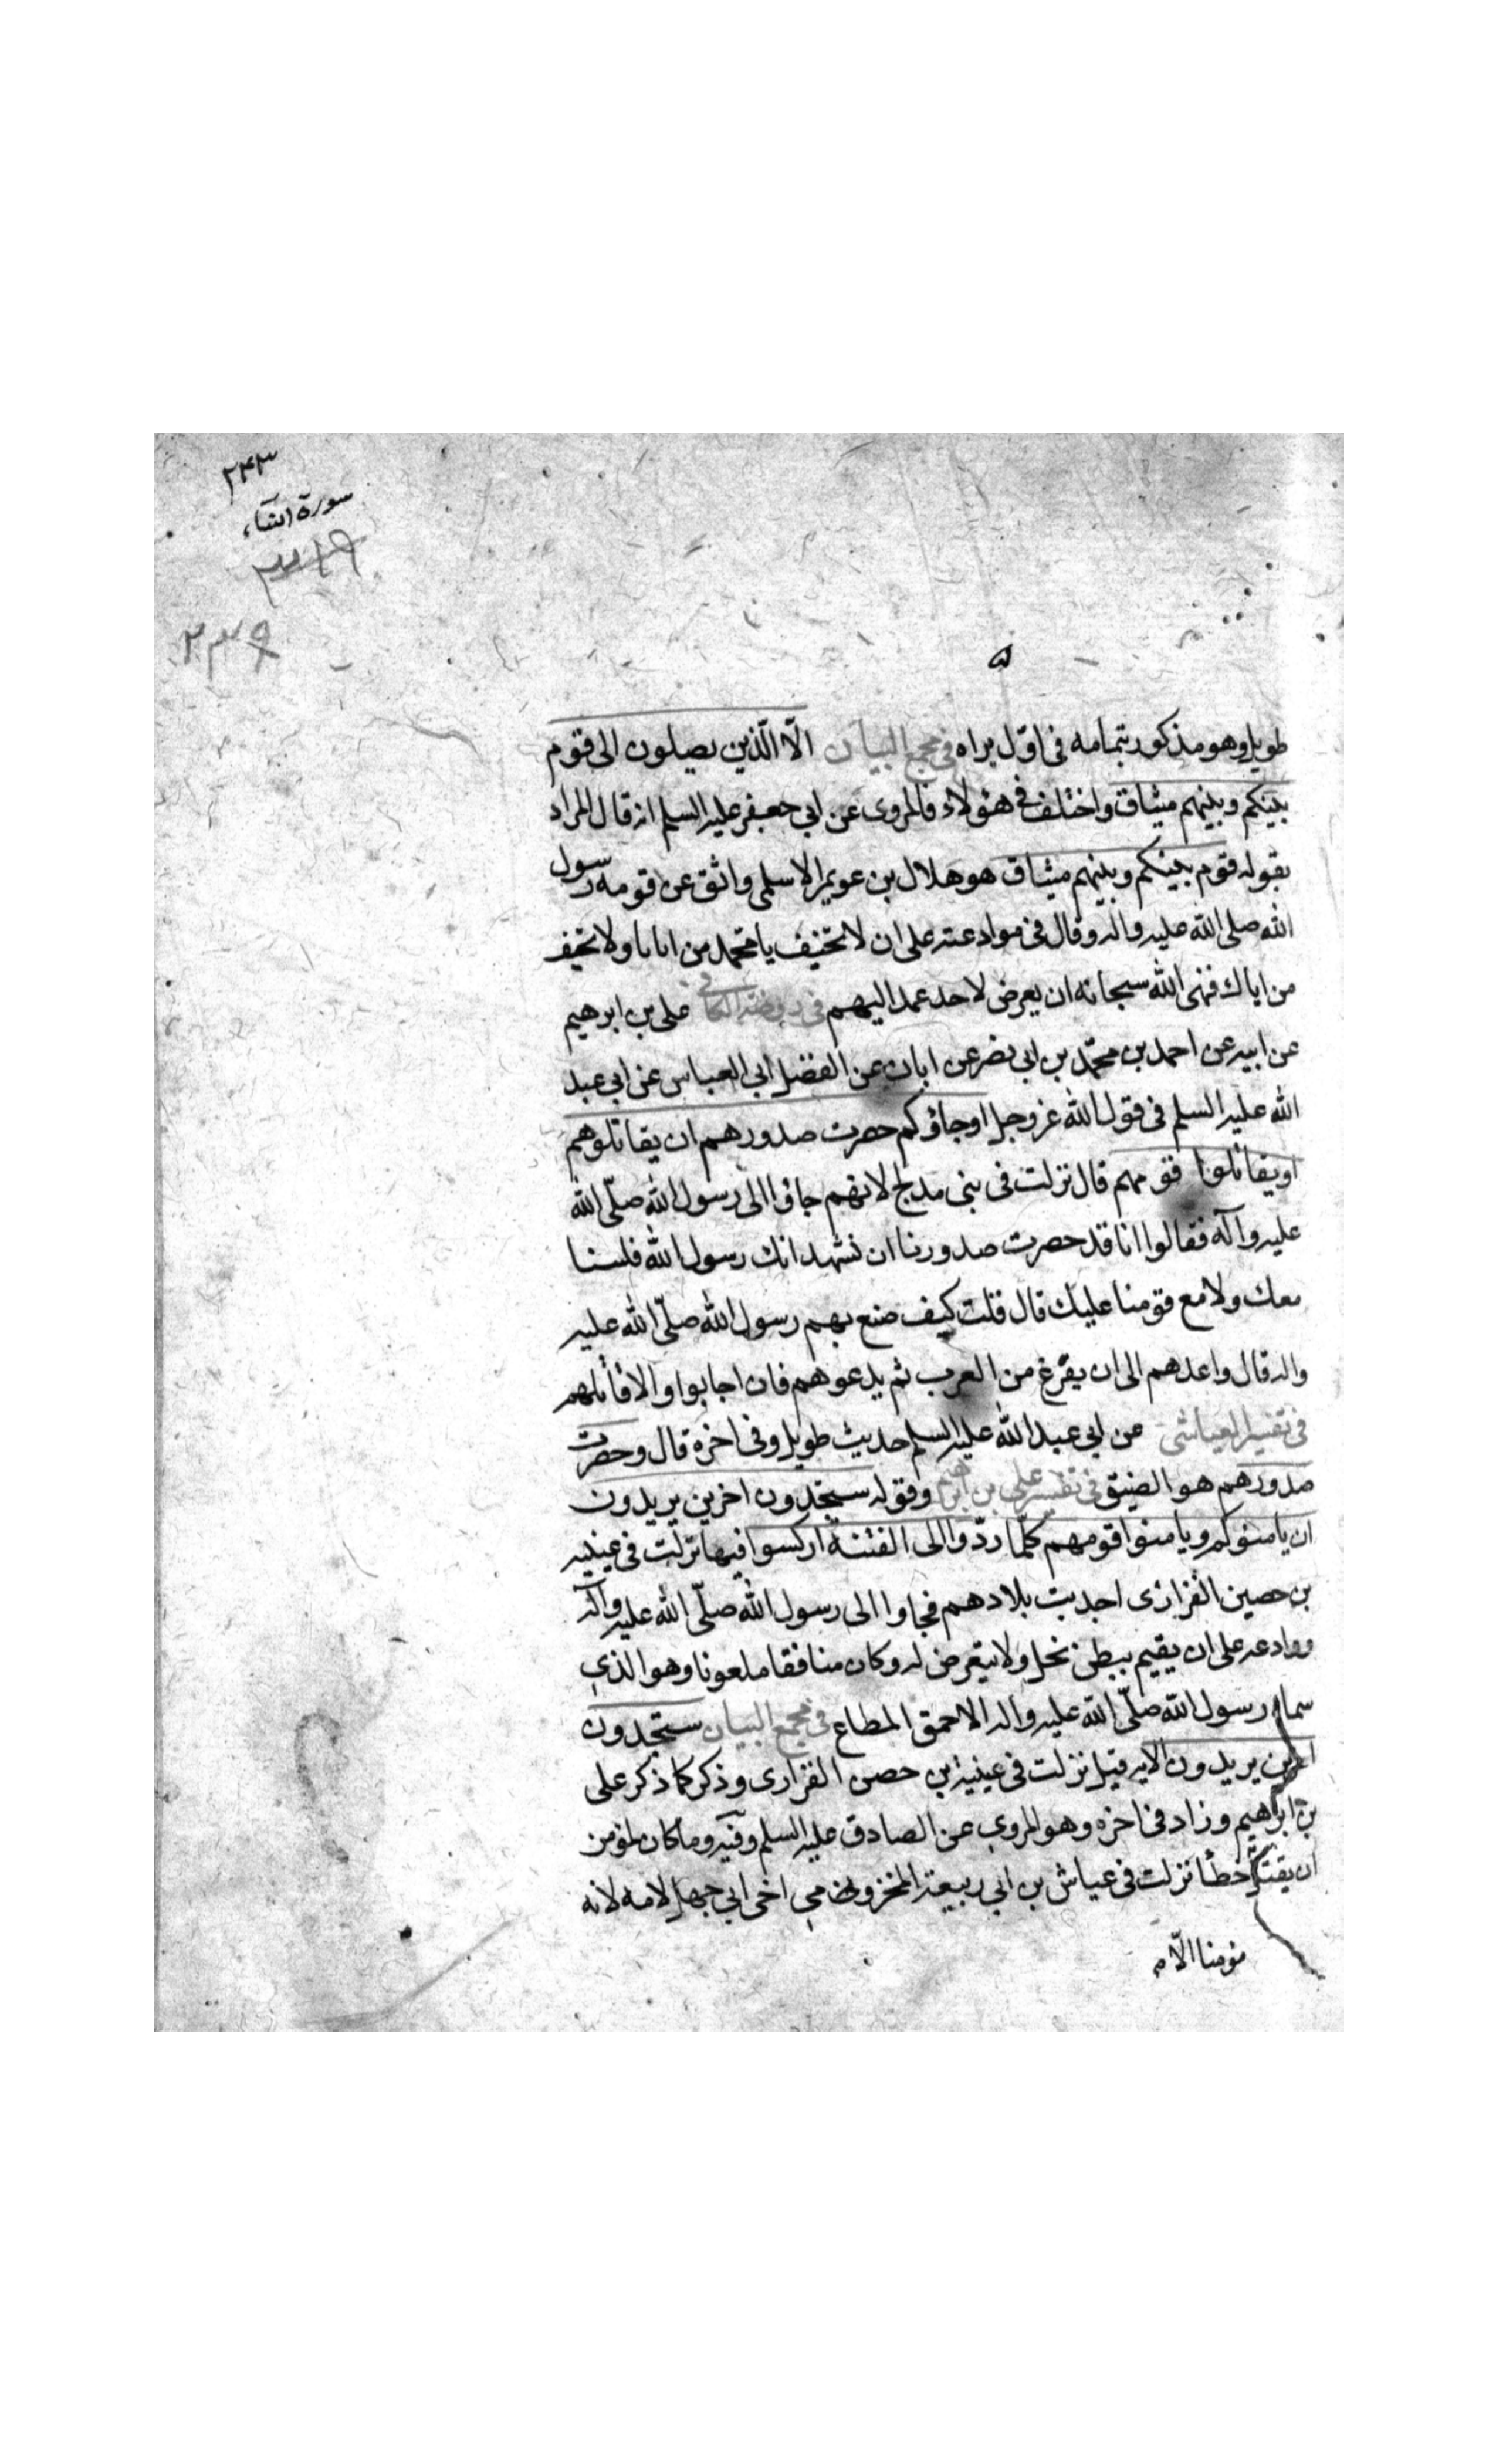 ۲۴۳
سورة النساء
۳۱۹
۲۳۹
طويل وهو مذكور بتمامه فى اول براه فى مجمع البيان الّا الّذين يصلون الى قوم
بينكم وبينهم ميثاق واختلف فى هئولاء فالمروى عن ابى جعفر عليه السلم انه قال المراد
بقوله قوم بينكم وبينهم ميثاق هو هلال بن عويمر الاسلمى واثق عن قومه رسول
الله صلى الله عليه واله وقال فى موادعته على ان لا تخيف يا محمد من اتانا ولا تخيف
من اتاك فنهى الله سبحانه ان يعرض لاحد عمد اليهم فى روضة الكافى على بن ابرهيم
عن ابيه عن احمد بن محمّد بن ابى نصر عن ابان عن الفضل ابى العباس عن ابى عبد
الله عليه السلم فى قول الله عز وجل او جاؤكم حصرت صدورهم ان يقاتلوهم
او يقاتلوا قومهم قال نزلت فى بنى مدلج لانهم جاؤا الى رسول الله صلّى الله
عليه وآله فقالوا انا قد حصرت صدورنا ان نشهد انك رسول الله فلسنا
معك ولا مع قومنا عليك قال قلت كيف صنع بهم رسول الله صلّى الله عليه
واله قال واعدهم الى ان يفرغ من العرب ثم يدعوهم فان اجابوا والا قاتلهم
فى تفسير العياشى عن ابى عبد الله عليه السلم حديث طويل وفى اخره قال وحصرت
صدورهم هو الضيق فى تفسير على بن ابرهيم وقوله ستجدون اخرين يريدون
ان يامنوكم ويامنوا قومهم كلّما ردّوا الى الفتنة اركسوا فيها نزلت فى عيينه
بن حصين الفزارى اجدبت بلادهم فجاوا الى رسول الله صلّى الله عليه وآله
ووادعه على ان يقيم ببطن نخل ولا يتعرض له وكان منافقا ملعونا وهو الذى
سماه رسول الله صلّى الله عليه واله الاحمق المطاع فى مجمع البيان ستجدون
اخرين يريدون الايه قيل نزلت فى عيينة بن حصن الفزارى وذكر كما ذكر على
بن ابراهيم وزاد فى اخره وهو المروى عن الصادق عليه السلم وفيه وما كان لمؤمن
ان يقتل خطأ نزلت فى عياش بن ابى ربيعة المخزومى اخى ابى جهل لامه لانه
مؤمنا الّا